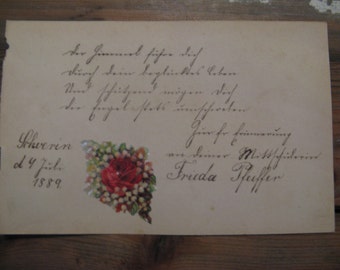 Der Himmel führe dich
Durch dein beglücktes Leben
Und schützend mögen Dich
die Engel stets umschweben
Zur Erinnerung
an deine Mitschülerin
Frieda Pfeffer
Schwerin
d 4 Juli
1889